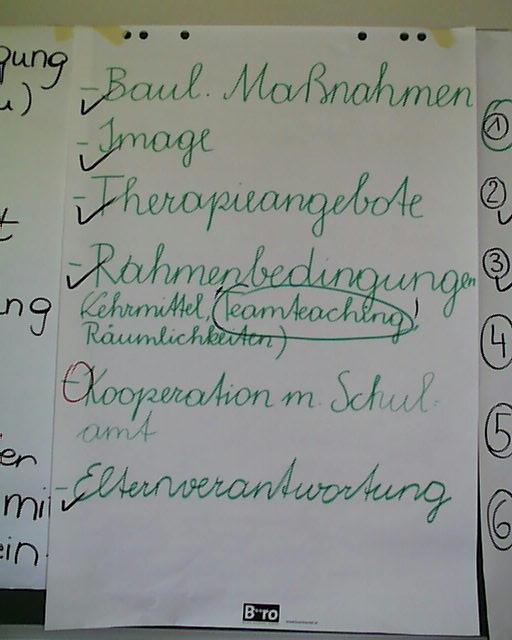 - Baul. Maßnahmen
- Image
- Therapieangebote
- Rahmenbedingungen
Lehrmittel, Teamteaching!
Räumlichkeiten)
- Kooperation m. Schul-
amt
- Elternverantwortung
B**ro
gung
u)
t
ng
en
mi
ein
1
2
3
4
5
6